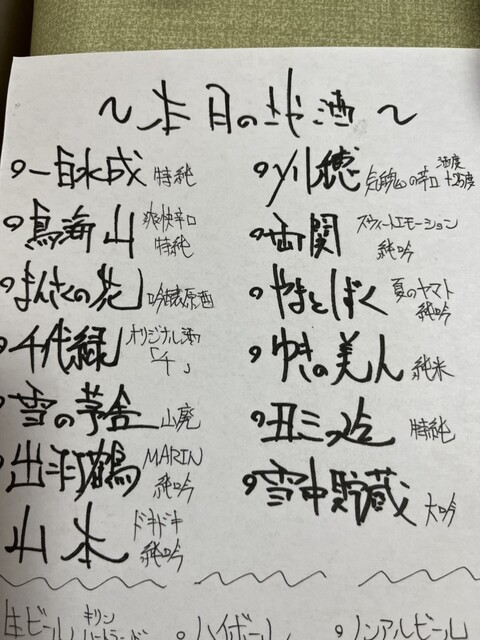 〜本日の地酒〜
一白水成 特純
鳥海山 爽快辛口 特純
まんさくの花 吟醸原酒
千代緑 オリジナル酒「千」
雪の茅舎 山廃
出羽鶴 MARIN 純吟
山本 ドキドキ 純吟
刈穂 気魄の辛口 酒度+25度
両関 スウィートエモーション 純吟
やまとしずく 夏のヤマト 純吟
ゆきの美人 純米
特純
雪中貯蔵 大吟
生ビール キリン ハートランド
ハイボール
ノンアルビール